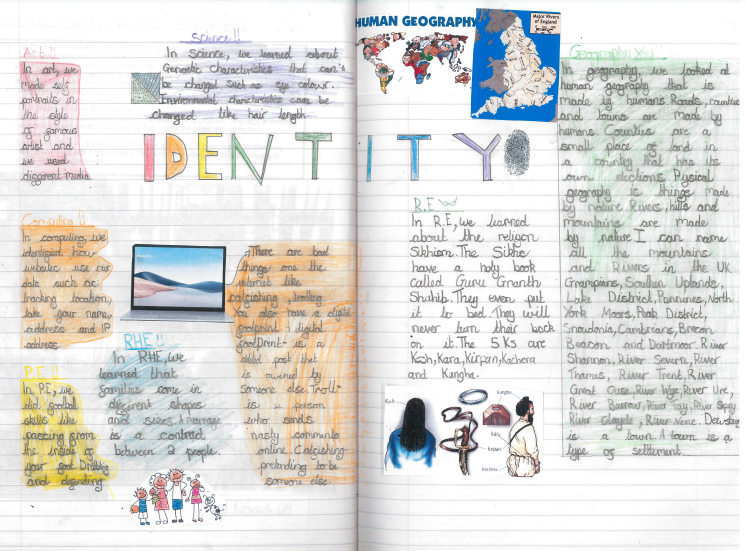 Art !!
In art, we
made self
portraits in
the style
of famous
artist and
we used
different media.
Science!!
In Science, we learned about
Genetic Characteristics that can't
be changed such as eye colour.
Environmental characteristics can be
changed like hair length
IDENTITY
Computing !!
In computing, we
identified how
websites use our
data such as:
tracking location,
take your name,
address and IP
address.
There are bad
things one the
internet like
catfishing, trolling
You also have a digital
footprint - digital
footprint - is a
child post that
is owned by
someone else. Troll-
is a person
who sends
nasty comments
online. Catfishing-
pretending to be
someone else
P.E !!
In P.E, we
did football
skills like
passing from
the inside of
your foot. Dribbling
and defending
RHE !!
In RHE, we
learned that
families come in
different shapes
and sizes. A marrage
is a contract
between 2 people.
HUMAN GEOGRAPHY
Major Rivers
of England
R.E
In R.E, we learned
about the religon
Sikhism. The Sikhs
have a holy book
called Guru Granth
Shahib. They even put
it to bed. They will
never turn their back
on it. The 5 Ks are
Kesh, Kara, Kirpan, Kachera
and Kanghe.
Kesh
Kanghe
Kara
Kirpan
Kachera
Geography
In geography, we looked at
human geography that is
made by humans. Roads, counties
and towns are made by
humans. Counties are a
small place of land in
a country that has its
own elections. Pysical
geography is things made
by nature. Rivers, hills and
mountains are made
by nature. I can name
all the mountains
and Rivers in the UK
Grampians, Southen Uplands,
Lake District, Pannines, North
York Moors, Peak District,
Snowdonia, Cambrians, Brecon
Beacon and Dartmoor. River
Shannon, River Severn, River
Thames, River Trent, River
Great Ouse, River Wye, River Ure,
River Barrow, River Tay, River Spey
River Clayde, River Nene. Dewsbury
is a town. A town is a
type of settlement.